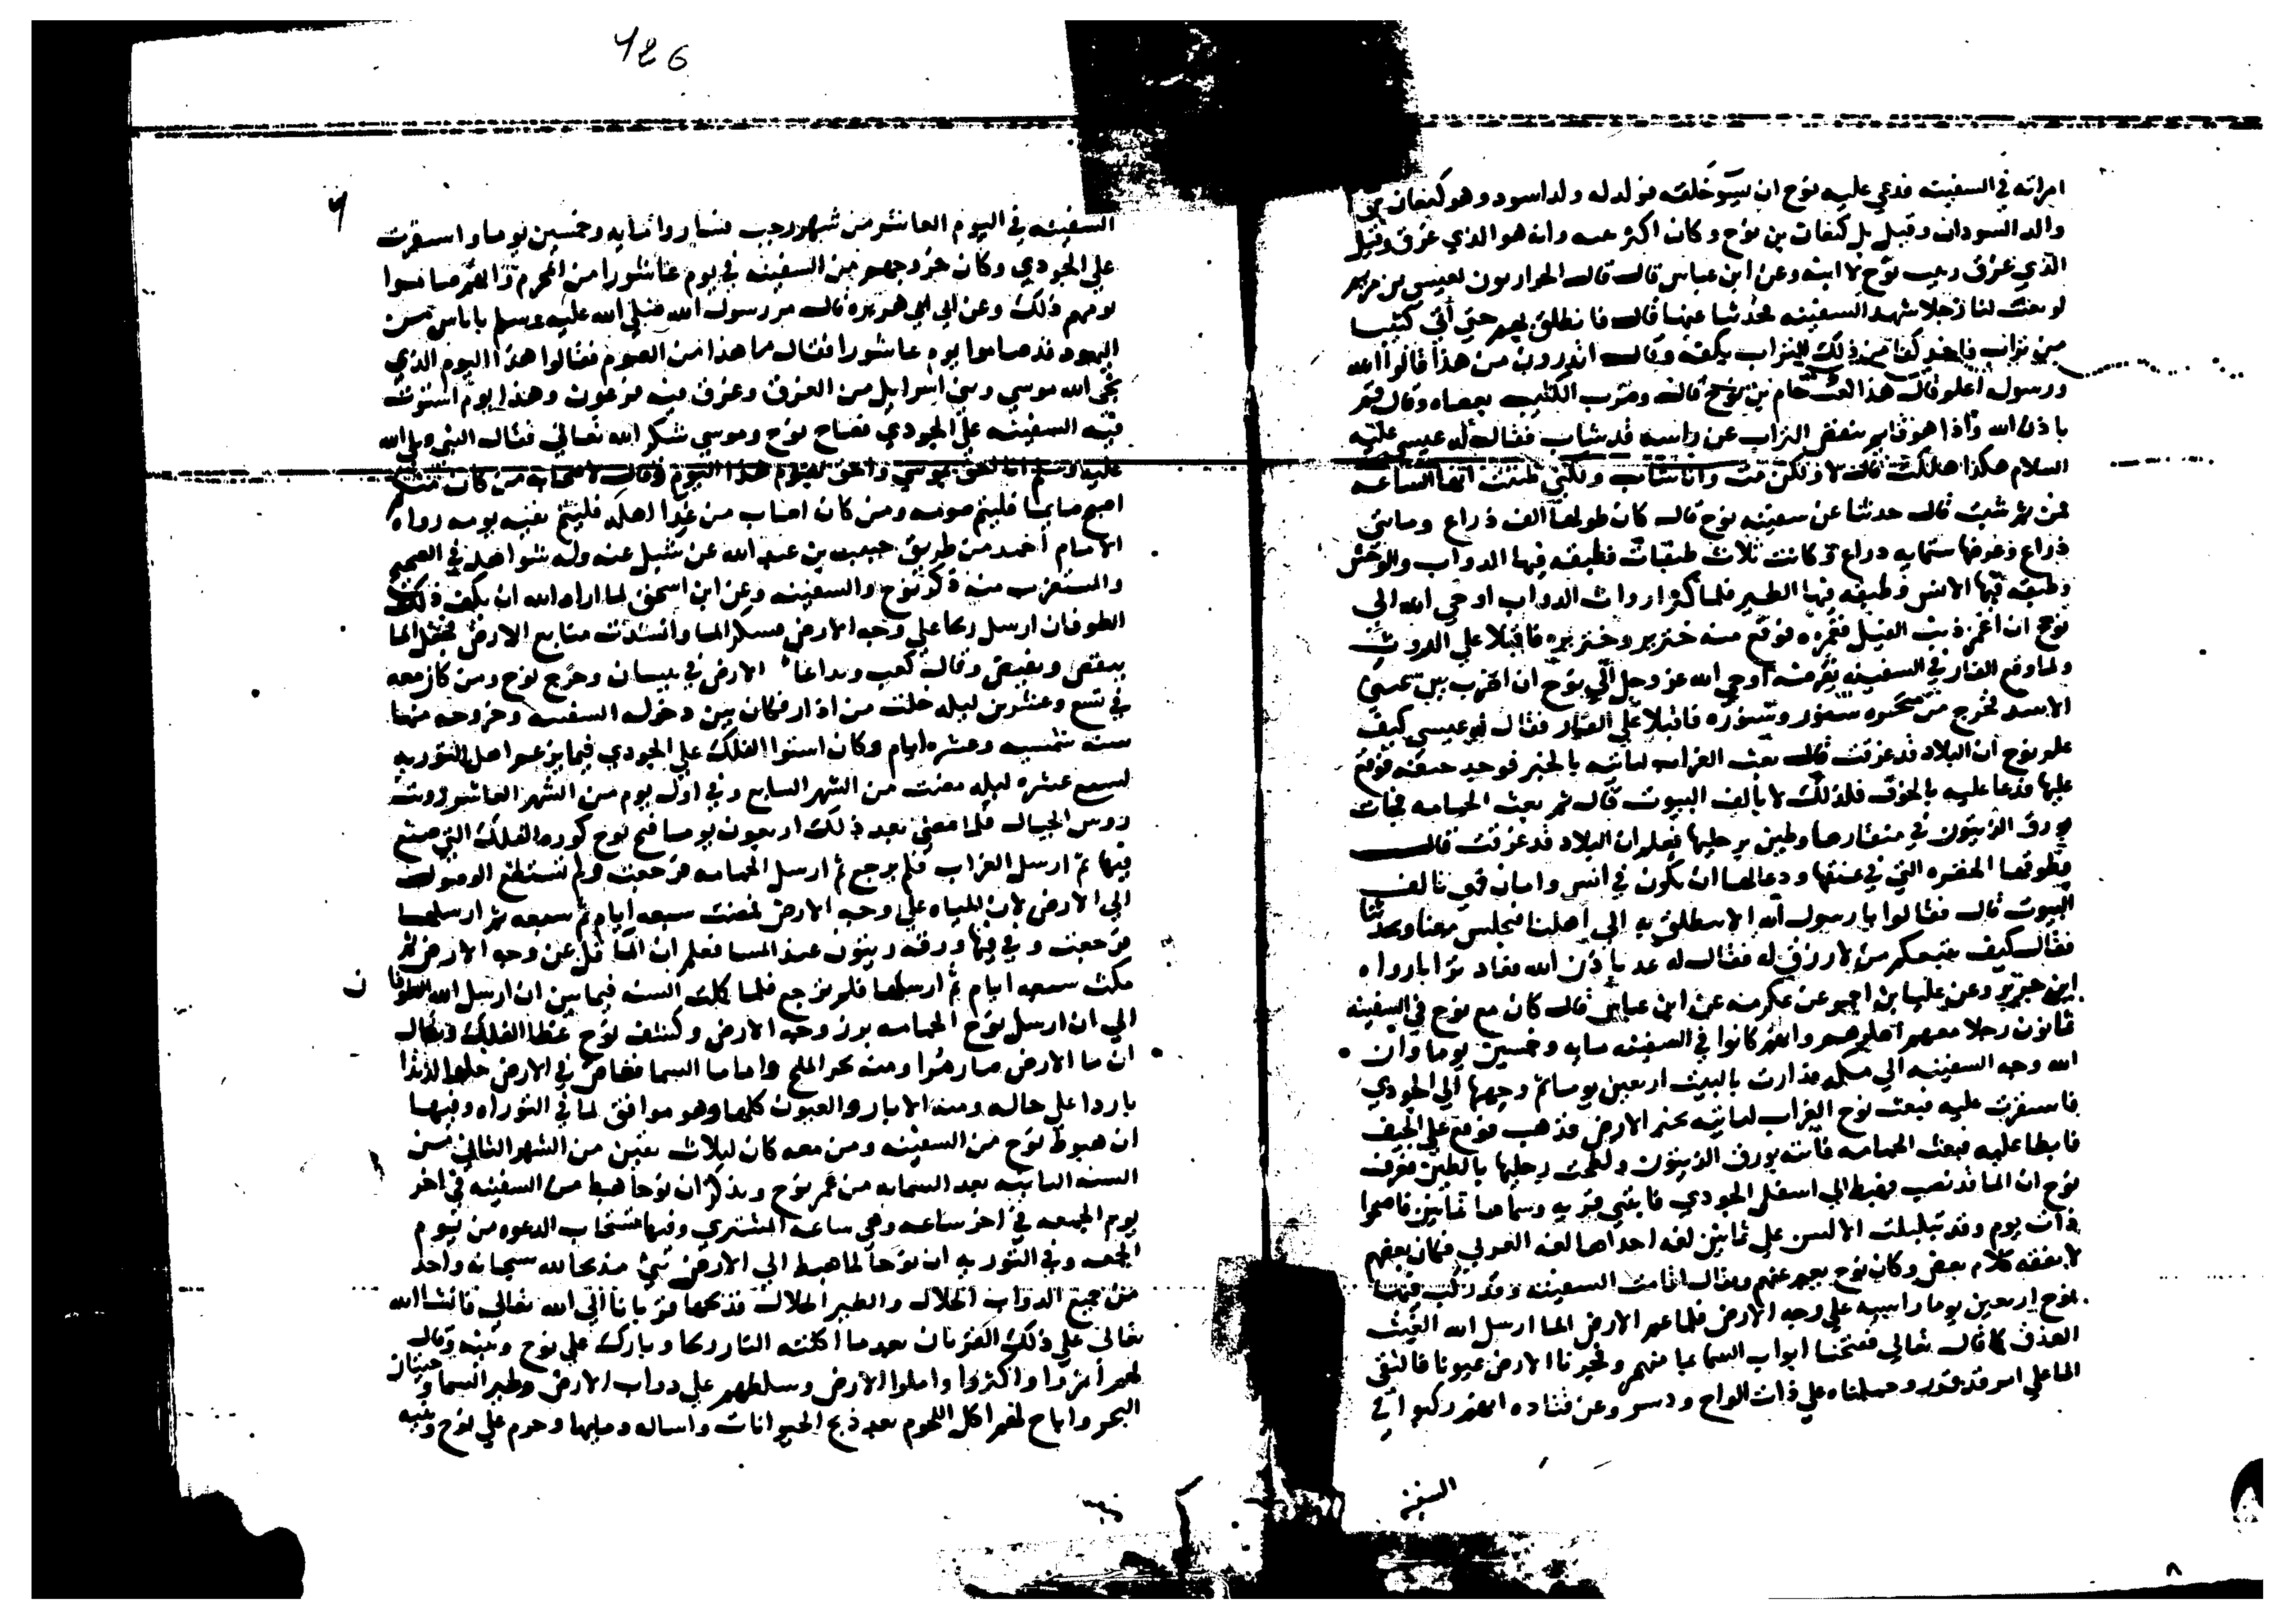 امراته في السفينه فدعي عليه نوح ان يسو خلقه فولد له ولد اسود وهو كنعان بن
والد السودان وقيل بل كنعان بن نوح وكان اكثر وان هو الذي غرق وقيل
الذي غرق ربيب نوح لا ابنه وعن ابن عباس قال قال الحواريون لعيسي بن مريم
لو بعثت لنا رجلا شهد السفينه يحدثنا عنها قال فانطلق بهم حتي أتي كثيبا
من تراب فاخذ كفا من ذلك التراب بكفه وقال اتدرون من هذا قالوا الله
ورسوله اعلم قال هذا كعب حام بن نوح قال وضرب الكثيب بعصاه وقال قم
باذن الله واذا هو قايم ينفض التراب عن راسه قد شاب فقال له عيسي عليه
السلام هكذا هلكت قال لا ولكن مت وانا شاب ولكني ظننت انها الساعه
فمن ثم شبت قال حدثنا عن سفينه نوح قال كان طولها الف ذراع ومايتي
ذراع وعرضها ستمايه ذراع وكانت ثلاث طبقات فطبقه فيها الدواب والوحش
وطبقه فيها الانس وطبقه فيها الطير فلما كثر اروات الدواب اوحي الله الي
نوح ان اغمز ذنب الفيل فغمزه فوقع منه خنزير وخنزيره فاقبلا علي الروث
ولما وقع الفار في السفينه يقرضه أوحي الله عز وجل الي نوح ان اضرب بين عيني
الاسد فخرج من منخره سنور وسنوره فاقبلا علي الفار فقال له عيسي كيف
علم نوح ان البلاد قد غرقت قال بعث الغراب لياتيه بالخبر فوجد جيفه فوقع
عليها فدعا عليه بالخوف فلذلك لا يألف البيوت قال ثم بعث الحمامه فجات
بورق الزيتون في منقارها وطين برجليها فعلم ان البلاد قد غرقت قال
فطوقها الخضره التي في عنقها ودعا لها ان تكون في انس وامان فمن ثم تالف
البيوت قال فقالوا يا رسول الله الا ننطلق به الي أهلنا فيجلس معنا ويحدثنا
فقال كيف يتبعكم من لا رزق له فقال له عد باذن الله فعاد ترابا رواه
ابن جرير وعن عليا بن احمر عن عكرمه عن ابن عباس قال كان مع نوح في السفينه
ثمانون رجلا معهم أهلوهم وانهم كانوا في السفينه مايه وخمسين يوما وان
الله وجه السفينه الي مكه فدارت بالبيت اربعين يوما ثم وجهها الي الجودي
فاستقرت عليه فبعث نوح الغراب لياتيه بخبر الارض فذهب فوقع علي الجيف
فابطا عليه فبعث الحمامه فاتته بورق الزيتون ولطخت رجليها بالطين فعرف
نوح ان الما قد نضب فهبط الي اسفل الجودي فابتني قريه وسماها ثمانين فاصبحوا
ذات يوم وقد تبلبلت الالسن علي ثمانين لغه احداها لغه العربي فكان بعضهم
لا يفقه كلام بعض وكان نوح يعبر عنهم ويقال اقامت السفينه وقد ركب فيها
نوح اربعين يوما راسيه علي وجه الارض فلما عم الارض الما ارسل الله الغيث
الغدق كما قال تعالي ففتحنا ابواب السما بما منهمر وفجرنا الارض عيونا فالتقي
الما علي امر قد قدر وحملناه علي ذات الواح ودسر وعن قتاده انهم ركبوا في
السفينه
٨
786
السفينه في اليوم العاشر من شهر رجب فساروا مايه وخمسين يوما واستقرت
علي الجودي وكان خروجهم من السفينه في يوم عاشورا من المحرم وانهم صاموا
يومهم ذلك وعن ابي هريره قال مر رسول الله صلي الله عليه وسلم باناس من
اليهود قد صاموا يوم عاشورا فقال ما هذا من الصوم فقالوا هذا اليوم الذي
نجي الله موسي وبني اسرايل من الغرق وغرق فيه فرعون وهذا يوم استوت
فيه السفينه علي الجودي فصام نوح وموسي شكر الله تعالي فقال النبي صلي الله
عليه وسلم انا احق بموسي واحق بصوم هذا اليوم وقال لاصحابه من كان منكم
اصبح صايما فليتم صومه ومن كان اصاب من غدا اهله فليتم بقيه يومه رواه
الامام أحمد من طريق حبيب بن عبد الله عن شبل عنه وله شواهد في الصحيح
والمستغرب منه ذكر نوح والسفينه وعن ابن اسحق لما اراد الله ان يكف ذلك
الطوفان ارسل ريحا علي وجه الارض فسكن الما وانسدت منابع الارض فجعل الما
ينقص ويغيض وقال كعب الارض في نيسان وخرج نوح ومن كان معه
في تسع وعشرين ليله خلت من اذار فكان بين دخوله السفينه وخروجه منها
سنه شمسيه وعشره ايام وكان استوا الفلك علي الجودي فيما يزعم اهل التوريه
لسبع عشره ليله مضت من الشهر السابع وفي اول يوم من الشهر العاشر رويت
روس الجبال فلما مضي بعد ذلك اربعون يوما فتح نوح كوره الفلك التي صنع
فيها ثم ارسل الغراب فلم يرجع ثم ارسل الحمامه فرجعت ولم تستطع الوصول
الي الارض لان المياه علي وجه الارض فمضت سبعه أيام ثم سبعه ثم ارسلها
فرجعت وفي فيها ورقه زيتون عند المسا فعلم ان الما قل عن وجه الارض ثم
مكث سبعه ايام ثم ارسلها فلم ترجع فلما كملت السنه فيما بين ان ارسل الله الطوفان
الي ان ارسل نوح الحمامه برز وجه الارض وكشف نوح غطا الفلك ويقال
ان ما الارض صار مرا ومنه بحر الملح واما ما السما فغاص في الارض حلوا لذيذا
باردا علي حاله ومنه الابار والعيون كلها وهو موافق لما في التوراه وفيها
ان هبوط نوح من السفينه ومن معه كان لثلاث بقين من الشهر الثاني من
السنه الثانيه بعد الستمايه من عمر نوح ويذكر ان نوحا هبط من السفينه في اخر
يوم الجمعه في اخر ساعه وهي ساعه المشتري وفيها تستجاب الدعوه من يوم
الجمعه وفي التوريه ان نوحا لما هبط الي الارض بني مذبحا لله سبحانه واخذ
من جميع الدواب الحلال والطير الحلال فذبحها قربانا الي الله تعالي فانشا الله
تعالي علي ذلك القربان بعد ما اكلته النار ريحا وبارك علي نوح وبنيه وقال
لهم أثمروا واكثروا واملوا الارض وسلطهم علي دواب الارض وطير السما وحيتان
البحر واباح لهم اكل اللحوم بعد ذبح الحيوانات واساله دمايها وحرم علي نوح وبنيه